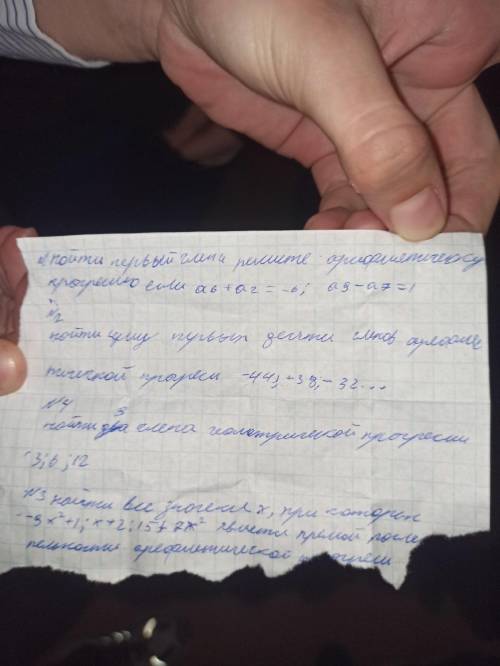 найти первый член решите арифметическую
прогрессию если a6+a2=-6; a9-a7=1
N2
найти суму первых десяти членов арифме
тической прогреси -44; -38; -32...
N4
найти 3 члена геометрической прогрессии
3; 6; 12
N3 найти все значения x, при которых
-9x²+1; x+2; 15+7x² является прямой после
арифметической прогреси